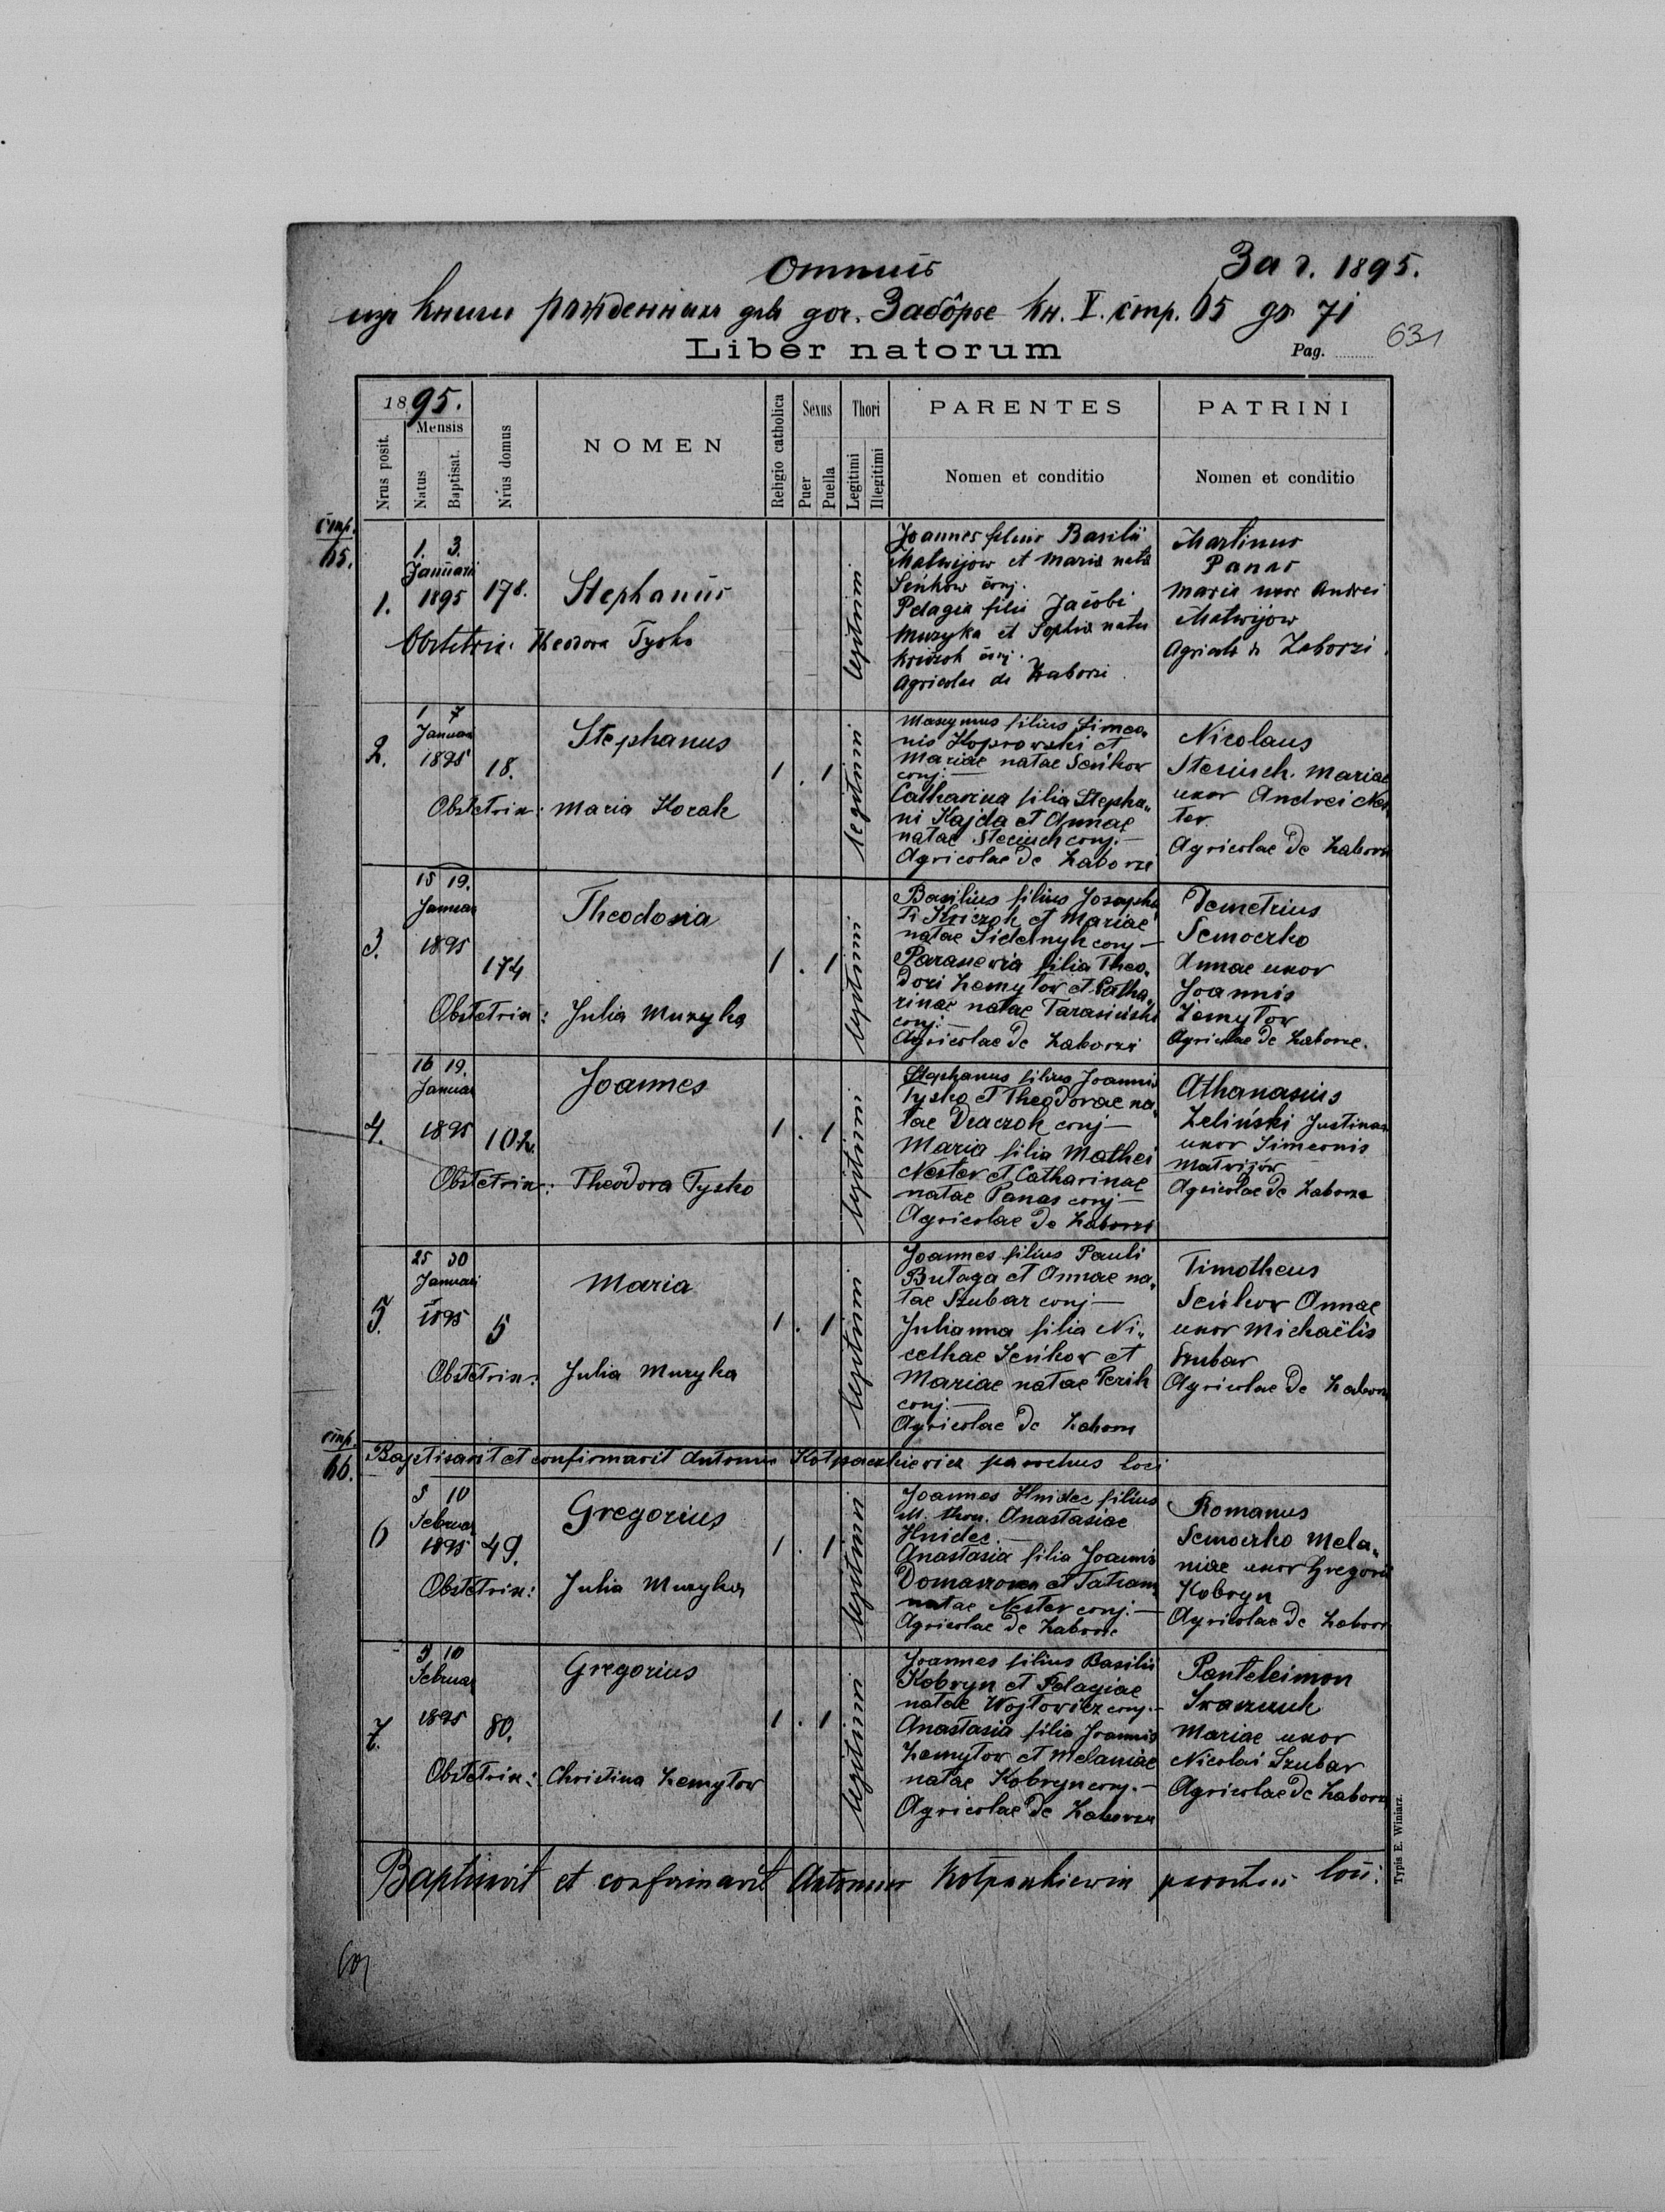 Отпись За г. 1895.
изъ книги рожденныхъ для дог. Забôрє кн. V. стр. 65 до 71
631
Liber natorum Pag.
1895.
Mensis
Nrus posit.
Natus
Baptisat.
Nrus domus
NOMEN
Religio catholica
Sexus
Puer
Puella
Thori
Legitimi
Illegitimi
PARENTES
Nomen et conditio
PATRINI
Nomen et conditio
стр.
65.
1.
1. 3.
Januari
1895
178.
Stephanus
Obstetrix: Theodora Tysko
legitimi
Joannes filius Basilii
Matwijow et Maria nata
Seńkow conj.
Pelagia filia Jacobi
Muzyka et Sophia nata
Kriczok conj.
Agricolae de Zaborze
Martinus
Panas
Maria uxor Andrei
Matwijow
Agricolae de Zaborzi
2.
1 7
Januari
1895
18.
Stephanus
Obstetrix: Maria Kozak
1 . 1
legitimi
Maxymus filius Simeo„
nis Koprowski et
Mariae natae Seńkow
conj.—
Catharina filia Stepha„
ni Kajda et Annae
natae Steciuch conj.—
Agricolae de Zaborze
Nicolaus
Steciuch. Mariae
uxor Andrei Nes„
ter.
Agricolae de Zaborze
3.
15 19.
Januar
1895
174
Theodosia
Obstetrix: Julia Muzyka
1 . 1
legitimi
Basilius filius Josapha„
ti Kriczok et Mariae
natae Sidelnyk conj—
Paraskewia filia Theo„
dori Zemytow et Catha„
rinae natae Tarasiński
conj.—
Agricolae de Zaborzi
Demetrius
Semoczko
Annae uxor
Joannis
Zemytow
Agricolae de Zaborze.
4.
16 19.
Januar
1895
102.
Joannes
Obstetrix: Theodora Tysko
1 . 1
legitimi
Stephanus filius Joannis
Tysko et Theodorae na„
tae Draczok conj—
Maria filia Mathei
Nester et Catharinae
natae Panas conj—
Agricolae de Zaborzi
Athanasius
Zeliński Justinae
uxor Simeonis
Matwijów
Agricolae de Zaborze
5.
25 30
Januari
1895
5
Maria
Obstetrix: Julia Muzyka
1 . 1
legitimi
Joannes filius Pauli
Butaga et Annae na„
tae Szubar conj—
Julianna filia Ni„
cethae Seńkow et
Mariae natae Perih
conj.—
Agricolae de Zaborzi
Timotheus
Seńkow Annae
uxor Michaëlis
Szubar
Agricolae de Zaborze
стр.
66.
Baptisavit et confirmavit Antonius Kotpaczkiewicz parochus loci
6
5 10
Februar
1895
49.
Gregorius
Obstetrix: Julia Muzyka
1 . 1
legitimi
Joannes Hnidec filius
ill. thori. Anastasiae
Hnidec.—
Anastasia filia Joannis
Domaszowec et Tatianae
natae Nester conj.—
Agricolae de Zaborze
Romanus
Semoczko Mela„
niae uxor Gregorii
Kobryn
Agricolae de Zaborze
7.
9 10
Februar
1895
80.
Gregorius
Obstetrix: Christina Zemytow
1 . 1
legitimi
Joannes filius Basilii
Kobryn et Pelagiae
natae Wojtowicz conj.—
Anastasia filia Joannis
Zemytow et Melaniae
natae Kobryn conj.—
Agricolae de Zaborza
Panteleimon
Mariae uxor
Nicolai Szubar
Agricolae de Zaborze
Baptisavit et confirmavit Antonius Kotpaczkiewicz parochus loci.
Typis E. Winiarz.